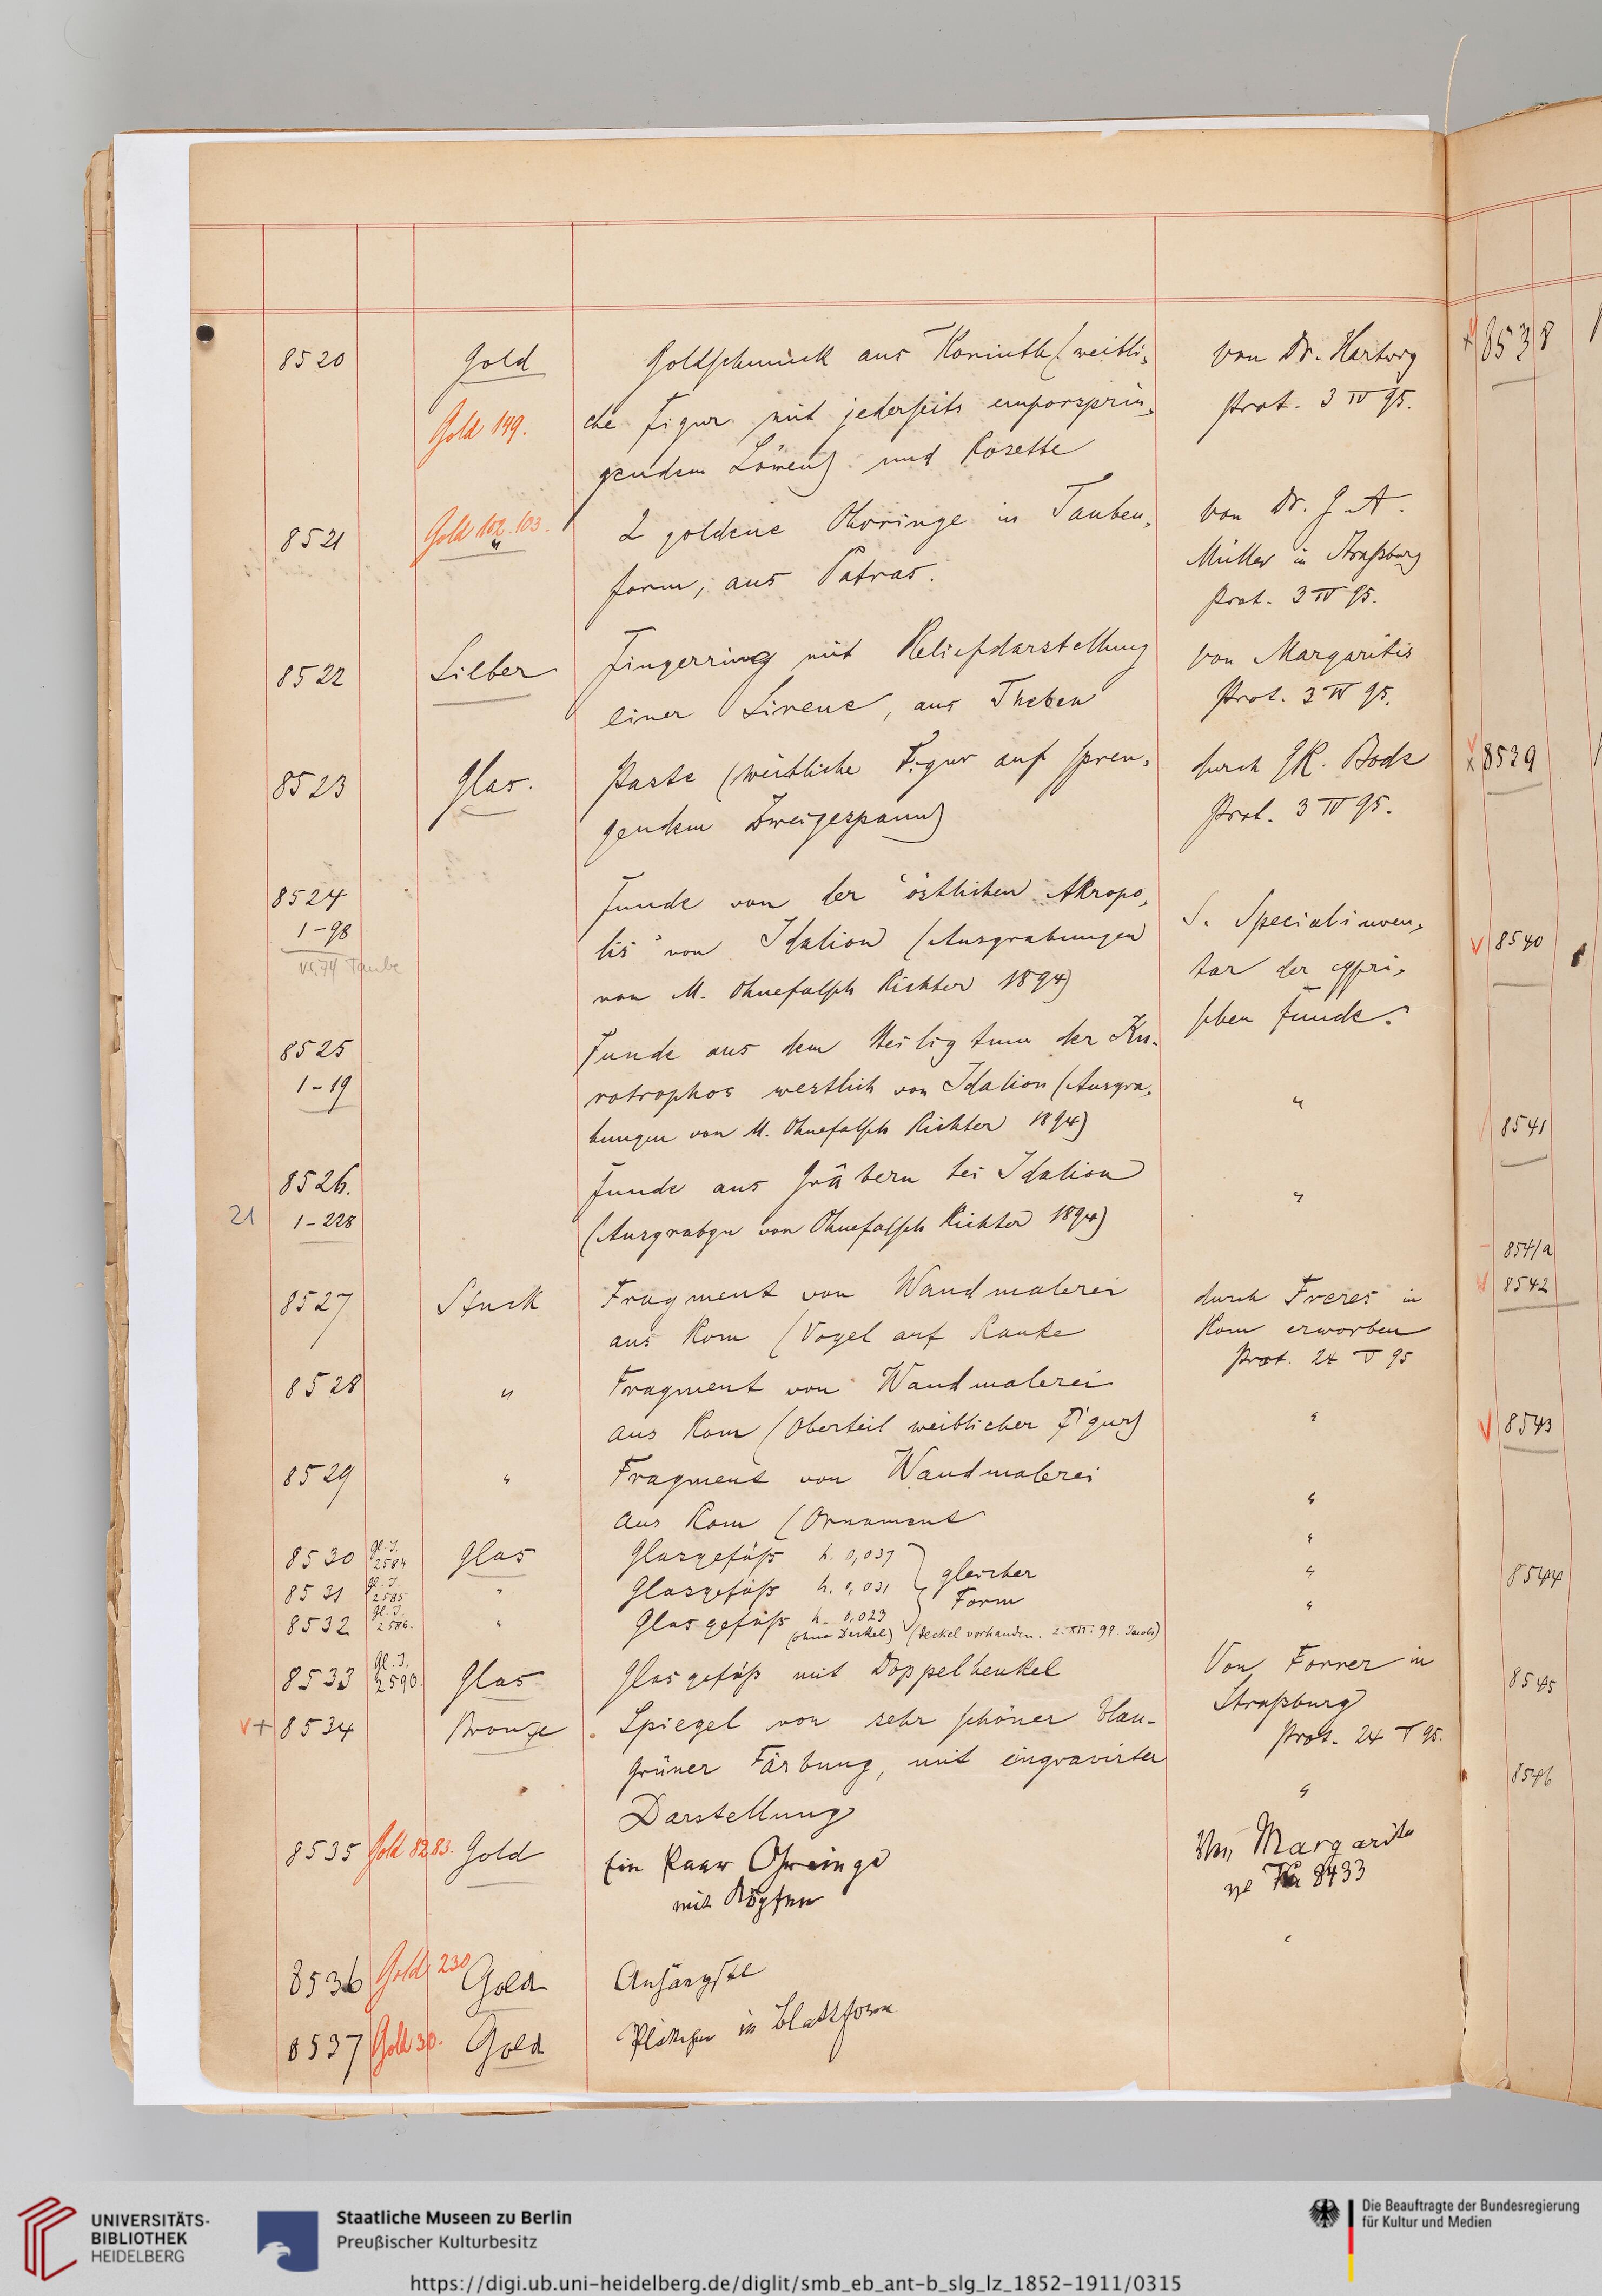 8520 Gold Goldschmuck aus Korinth (weibli- von Dr. Hartwig
Gold 149. che Figur mit jederseits emporsprin- Prot. 3 IV 95.
gendem Löwen) und Rosette
8521 Gold 102. 103. " 2 goldene Ohrringe in Tauben- von Dr. J. A.
form, aus Patras. Müller in Straßburg
Prot. 3 IV 95.
8522 Silber Fingerring mit Reliefdarstellung von Margaritis
einer Sirene, aus Theben Prot. 3 IV 95.
8523 Glas. Paste (weibliche Figur auf spren- durch GR. Bode
gendem Zweigespann) Prot. 3 IV 95.
8524 Funde von der "östlichen Akropo- S. Specialinven-
1-98 lis" von Idalion (Ausgrabungen tar der cypri-
vs. 74 Taube von M. Ohnefalsch Richter 1894) schen Funde.
8525 Funde aus dem Heiligtum der Ku-
1-19 rotrophos westlich von Idalion (Ausgra- "
bungen von M. Ohnefalsch Richter 1894)
8526. Funde aus Gräbern bei Idalion "
21 1-228 (Ausgrabgn von Ohnefalsch Richter 1894)
8527 Stuck Fragment von Wandmalerei durch Freres in
aus Rom (Vogel auf Ranke Rom erworben
Prot. 24 V 95
8528 " Fragment von Wandmalerei
aus Rom (Oberteil weiblicher Figur) "
8529 " Fragment von Wandmalerei
aus Rom (Ornament "
8530 Gl. I. 2584 Glas Glasgefäß h. 0,037 "
8531 Gl. I. 2585 " Glasgefäß h. 0,031 gleicher Form "
8532 Gl. I. 2586. " Glasgefäß h. 0,023 "
(ohne Deckel) (Deckel vorhanden. 2. XII. 99. Jacobs)
8533 Gl. I. 2590. Glas Glasgefäß mit Doppelhenkel Von Forrer in
Straßburg
V + 8534 Bronze Spiegel von sehr schöner blau- Prot. 24 V 95.
grüner Färbung, mit eingravirter
Darstellung "
8535 Gold 82.83. Gold Ein Paar Ohrringe Von Margaritis
mit Köpfen 8433
8536 Gold 230 Gold Anhängsel "
8537 Gold 30. Gold Plättchen in Blattform
V + 8538
V x 8539
V 8540
8541
8541a
V 8542
V 8543
8544
8545
8546
UNIVERSITÄTS-
BIBLIOTHEK
HEIDELBERG
Staatliche Museen zu Berlin
Preußischer Kulturbesitz
Die Beauftragte der Bundesregierung
für Kultur und Medien
https://digi.ub.uni-heidelberg.de/diglit/smb_eb_ant-b_slg_lz_1852-1911/0315